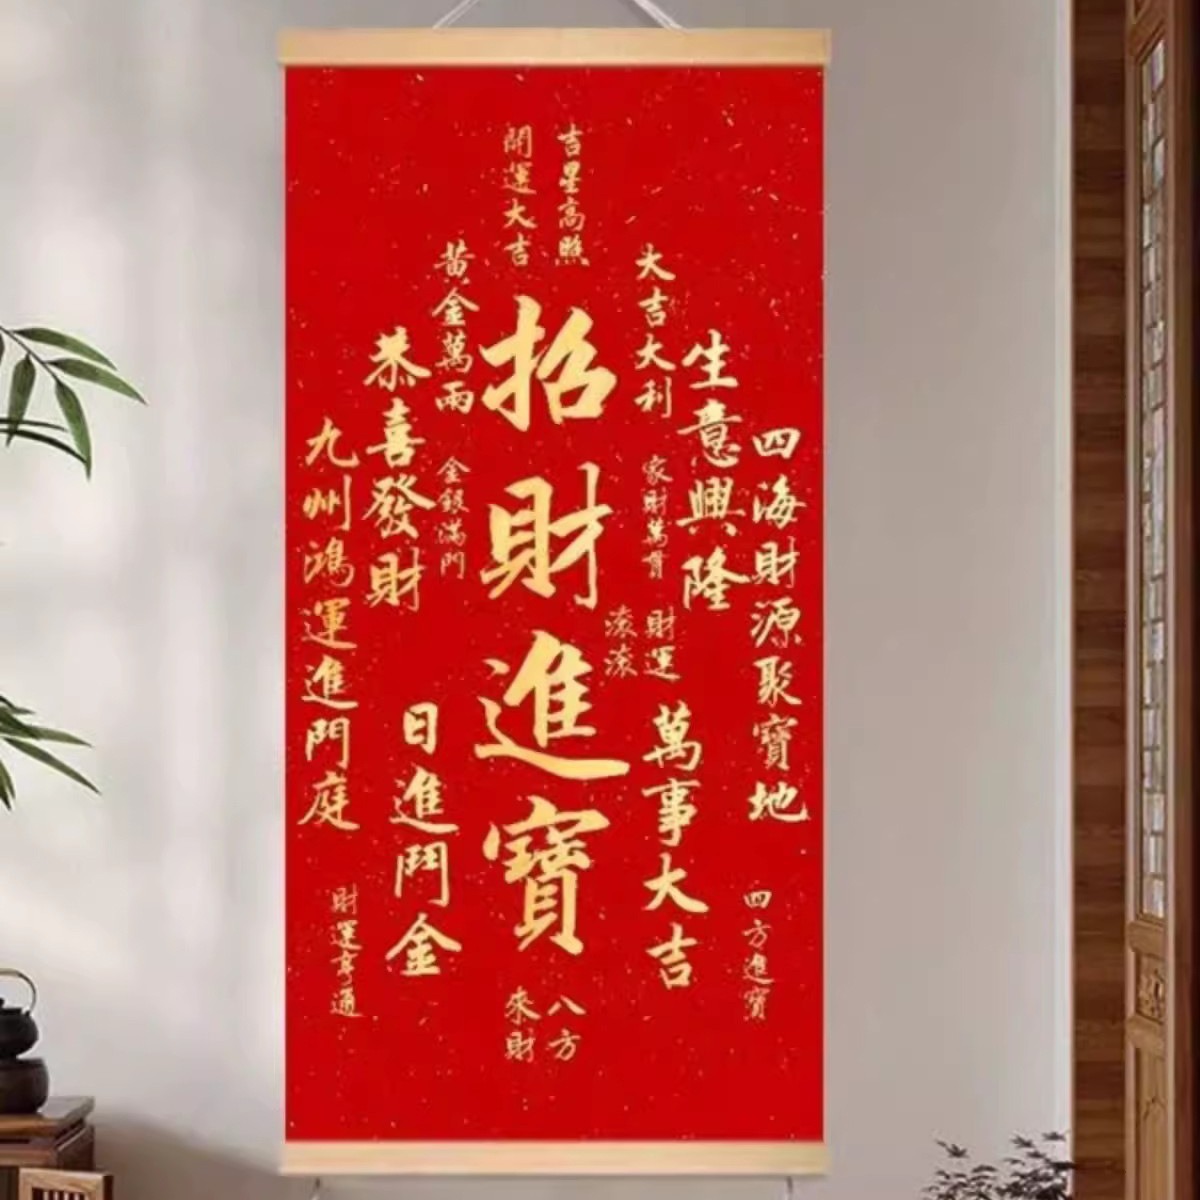 吉星高照
開運大吉
大吉大利
黃金萬兩
招財進寶
生意興隆
恭喜發財
四海財源聚寶地
九州鴻運進門庭
家財萬貫
金銀滿門
財運
滾滾
萬事大吉
日進鬥金
四方進寶
財運亨通
八方
來財